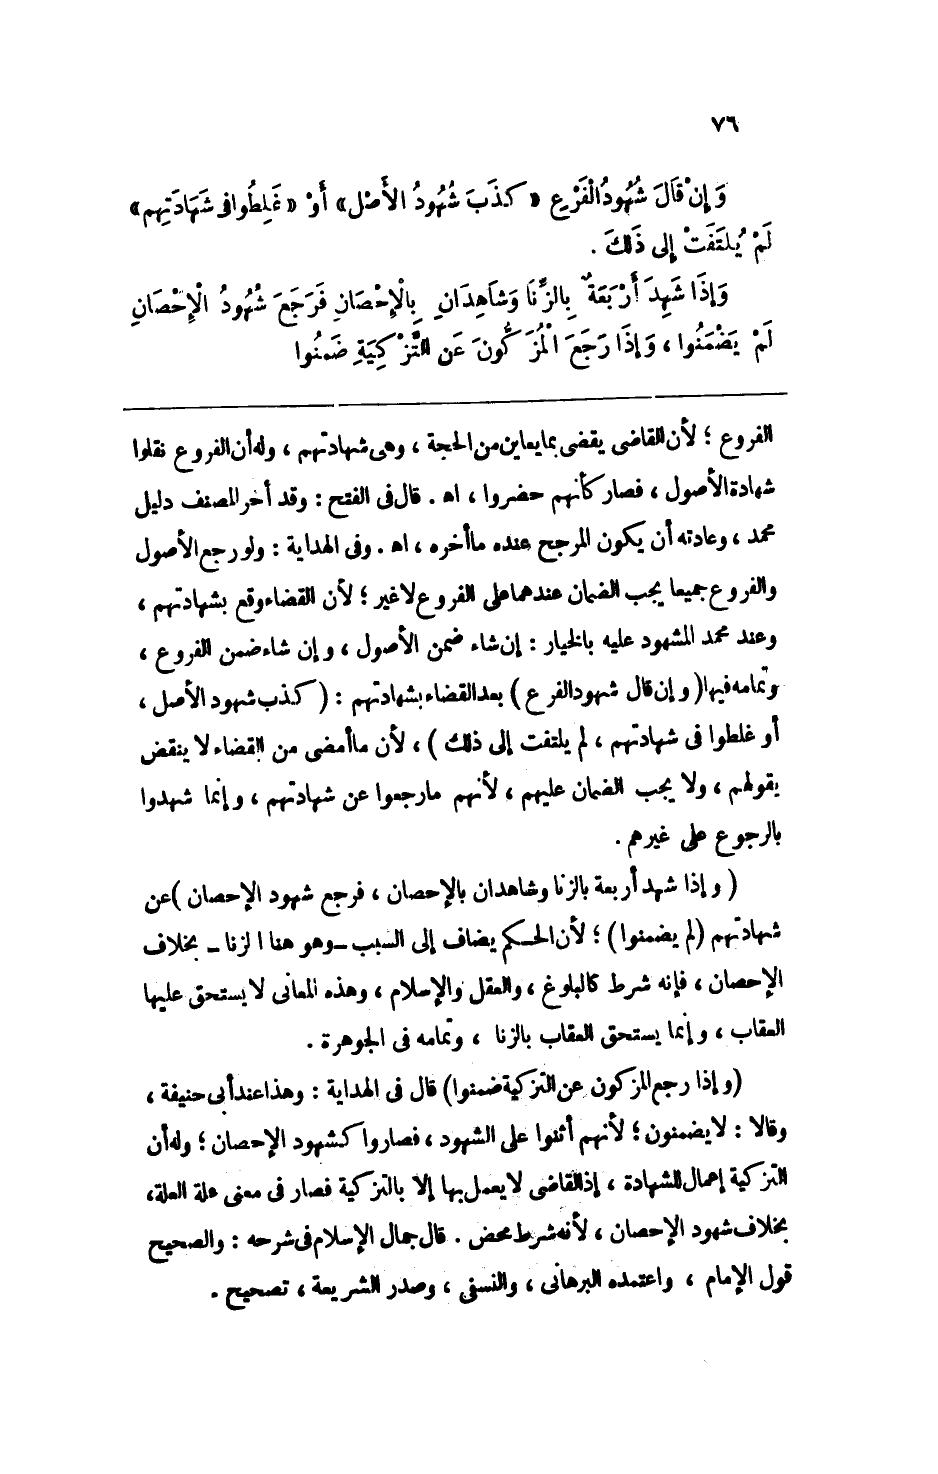 ٧٦
وَإِنْ قَالَ شُهُودُ الْفَرْعِ «كَذَبَ شُهُودُ الأَصْلِ» أَوْ «غَلِطُوا فى شَهَادَتِهِم»
لَمْ يُلْتَفَتْ إِلى ذَلِكَ .
وَإِذَا شَهِدَ أَرْبَعَةٌ بِالزِّنَا وَشَاهِدَانِ بِالْإِحْصَانِ فَرَجَعَ شُهُودُ الْإِحْصَانِ
لَمْ يَضْمَنُوا ، وَإِذَا رَجَعَ الْمُزَكُّونَ عَنِ التَّزْكِيَةِ ضَمِنُوا
الفروع ؛ لأن القاضى يقضى بما يعاين من الحجة ، وهى شهادتهم ، وله أن الفروع نقلوا
شهادة الأصول ، فصار كأنهم حضروا ، اه . قال فى الفتح : وقد أخر المصنف دليل
محمد ، وعادته أن يكون المرجح عنده ما أخره ، اه . وفى الهداية : ولو رجع الأصول
والفروع جميعا يجب الضمان عندهما على الفروع لا غير ؛ لأن القضاء وقع بشهادتهم ،
وعند محمد المشهود عليه بالخيار : إن شاء ضمن الأصول ، وإن شاء ضمن الفروع ،
وتمامه فيها (وإن قال شهود الفرع) بعد القضاء بشهادتهم : (كذب شهود الأصل ،
أو غلطوا فى شهادتهم ، لم يلتفت إلى ذلك) ، لأن ما أمضى من القضاء لا ينقض
بقولهم ، ولا يجب الضمان عليهم ، لأنهم ما رجعوا عن شهادتهم ، وإنما شهدوا
بالرجوع على غيرهم .
(وإذا شهد أربعة بالزنا وشاهدان بالإحصان ، فرجع شهود الإحصان) عن
شهادتهم (لم يضمنوا) ؛ لأن الحكم يضاف إلى السبب - وهو هنا الزنا - بخلاف
الإحصان ، فإنه شرط كالبلوغ ، والعقل والإسلام ، وهذه المعانى لا يستحق عليها
العقاب ، وإنما يستحق العقاب بالزنا ، وتمامه فى الجوهرة .
(وإذا رجع المزكون عن التزكية ضمنوا) قال فى الهداية : وهذا عند أبى حنيفة ،
وقالا : لا يضمنون ؛ لأنهم أثنوا على الشهود ، فصاروا كشهود الإحصان ؛ وله أن
التزكية إعمال للشهادة ، إذ القاضى لا يعمل بها إلا بالتزكية فصار فى معنى علة العلة،
بخلاف شهود الإحصان ، لأنه شرط محض . قال جمال الإسلام فى شرحه : والصحيح
قول الإمام ، واعتمده البرهانى ، والنسفى ، وصدر الشريعة ، تصحيح .